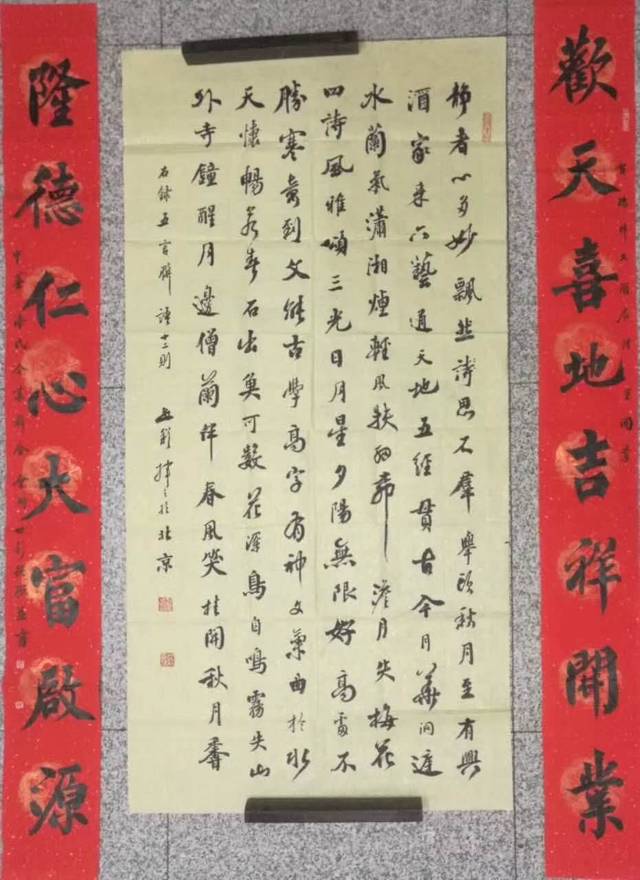 歡天喜地吉祥開業
靜者心多妙飄然詩思不羣舉頭秋月至有興
酒家來六藝通天地五經貫古今月華洞庭
水蘭氣瀟湘煙輕風扶細柳澹月失梅花
四詩風雅頌三光日月星夕陽無限好高處不
勝寒奇到文能古學高字有神文藁曲於水
天懷暢若春石出魚可數花深鳥自鳴霧失山
外寺鐘醒月邊僧蘭伴春風笑桂開秋月馨
右錄五言聯語十二則 揮之於北京
隆德仁心大富啟源